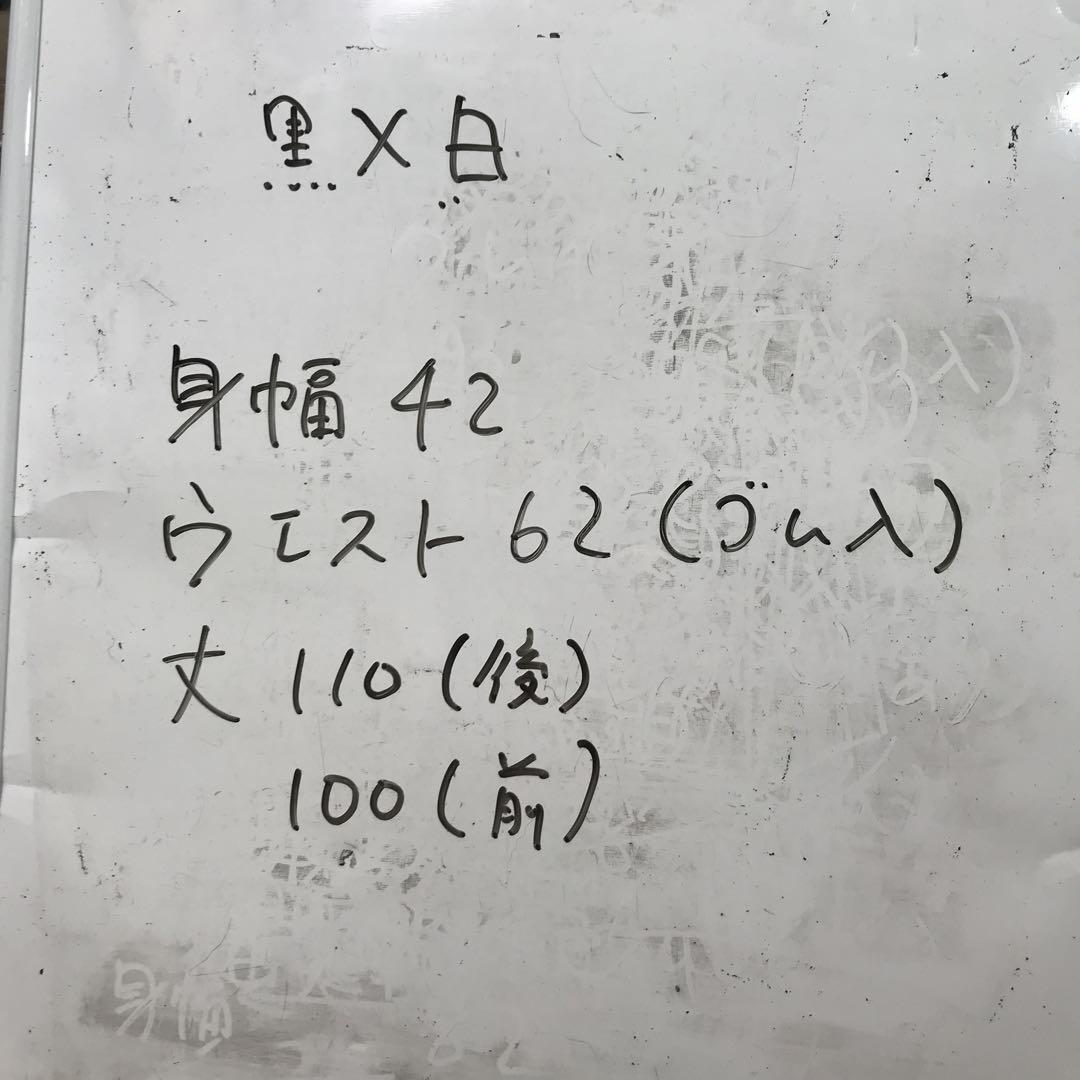 黒×白
身幅 42
ウエスト 62 (ゴム入)
丈 110 (後)
100 (前)
身幅